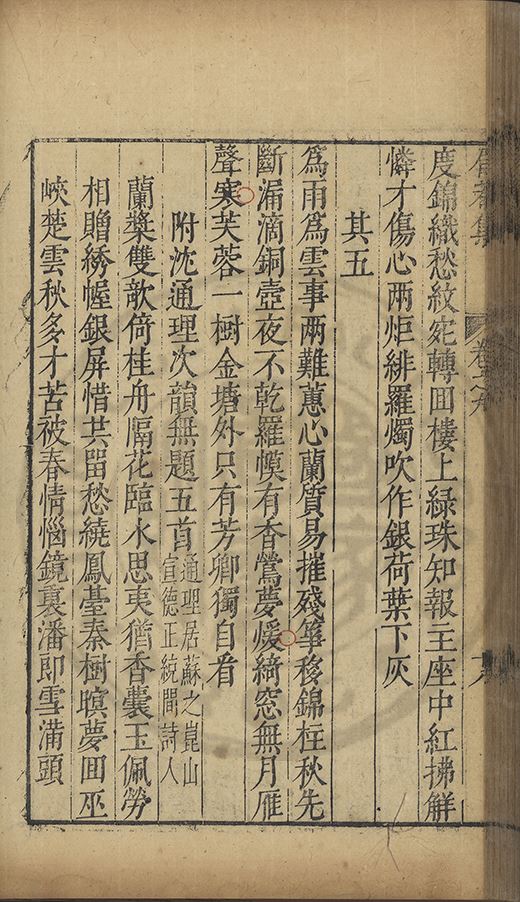 度錦織愁紋宛轉回樓上緑珠知報主座中紅拂解
憐才傷心兩炬緋羅燭吹作銀荷葉下灰
其五
為雨為雲事兩難蕙心蘭質易摧殘筝移錦柱秋先
斷漏滴銅壺夜不乾羅幙有香鶯夢煖綺窓無月雁
聲寒芙蓉一樹金塘外只有芳卿獨自看
附沈通理次韻無題五首通理居蘇之崑山
宣德正統間詩人
蘭槳雙歌倚桂舟隔花臨水思夷猶香囊玉佩勞
相贈綉幄銀屏惜共留愁繞鳳臺秦樹暝夢回巫
峽楚雲秋多才苦被春情惱鏡裏潘郎雪滿頭